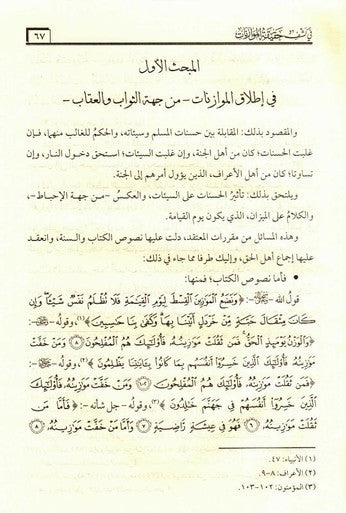 في كشف حقيقة الموازنات
٦٧
المبحث الأول
في إطلاق الموازنات - من جهة الثواب والعقاب -
والمقصود بذلك: المقابلة بين حسنات المسلم وسيئاته، والحكمُ للغالب منهما، فإن
غلبت الحسنات؛ كان من أهل الجنة، وإن غلبت السيئات؛ استحق دخول النار، وإن
تساوتا؛ كان من أهل الأعراف، الذين يؤول أمرهم إلى الجنة.
ويلتحق بذلك: تأثيرُ الحسنات على السيئات، والعكسُ -من جهة الإحباط-،
والكلامُ على الميزان، الذي يكون يوم القيامة.
وهذه المسائل من مقررات المعتقد، دلت عليها نصوص الكتاب والسنة، وانعقد
عليها إجماع أهل الحق، وإليك طرفا مما جاء في ذلك:
• فأما نصوص الكتاب؛ فمنها:
قول الله -ﷻ-: ﴿وَنَضَعُ الْمَوَازِينَ الْقِسْطَ لِيَوْمِ الْقِيَامَةِ فَلَا تُظْلَمُ نَفْسٌ شَيْئًا وَإِن
كَانَ مِثْقَالَ حَبَّةٍ مِّنْ خَرْدَلٍ أَتَيْنَا بِهَا وَكَفَىٰ بِنَا حَاسِبِينَ﴾(١)، وقوله -ﷻ-:
﴿وَالْوَزْنُ يَوْمَئِذٍ الْحَقُّ فَمَن ثَقُلَتْ مَوَازِينُهُ فَأُولَٰئِكَ هُمُ الْمُفْلِحُونَ ﴿٨﴾ وَمَنْ خَفَّتْ
مَوَازِينُهُ فَأُولَٰئِكَ الَّذِينَ خَسِرُوا أَنفُسَهُم بِمَا كَانُوا بِآيَاتِنَا يَظْلِمُونَ﴾(٢)، وقوله -ﷻ-:
﴿فَمَن ثَقُلَتْ مَوَازِينُهُ فَأُولَٰئِكَ هُمُ الْمُفْلِحُونَ ﴿١٠٢﴾ وَمَنْ خَفَّتْ مَوَازِينُهُ فَأُولَٰئِكَ
الَّذِينَ خَسِرُوا أَنفُسَهُمْ فِي جَهَنَّمَ خَالِدُونَ﴾(٣)، وقوله -جل شأنه-: ﴿فَأَمَّا مَن
ثَقُلَتْ مَوَازِينُهُ ﴿٦﴾ فَهُوَ فِي عِيشَةٍ رَّاضِيَةٍ ﴿٧﴾ وَأَمَّا مَنْ خَفَّتْ مَوَازِينُهُ ﴿٨﴾
(١) الأنبياء: ٤٧.
(٢) الأعراف: ٨-٩.
(٣) المؤمنون: ١٠٢-١٠٣.